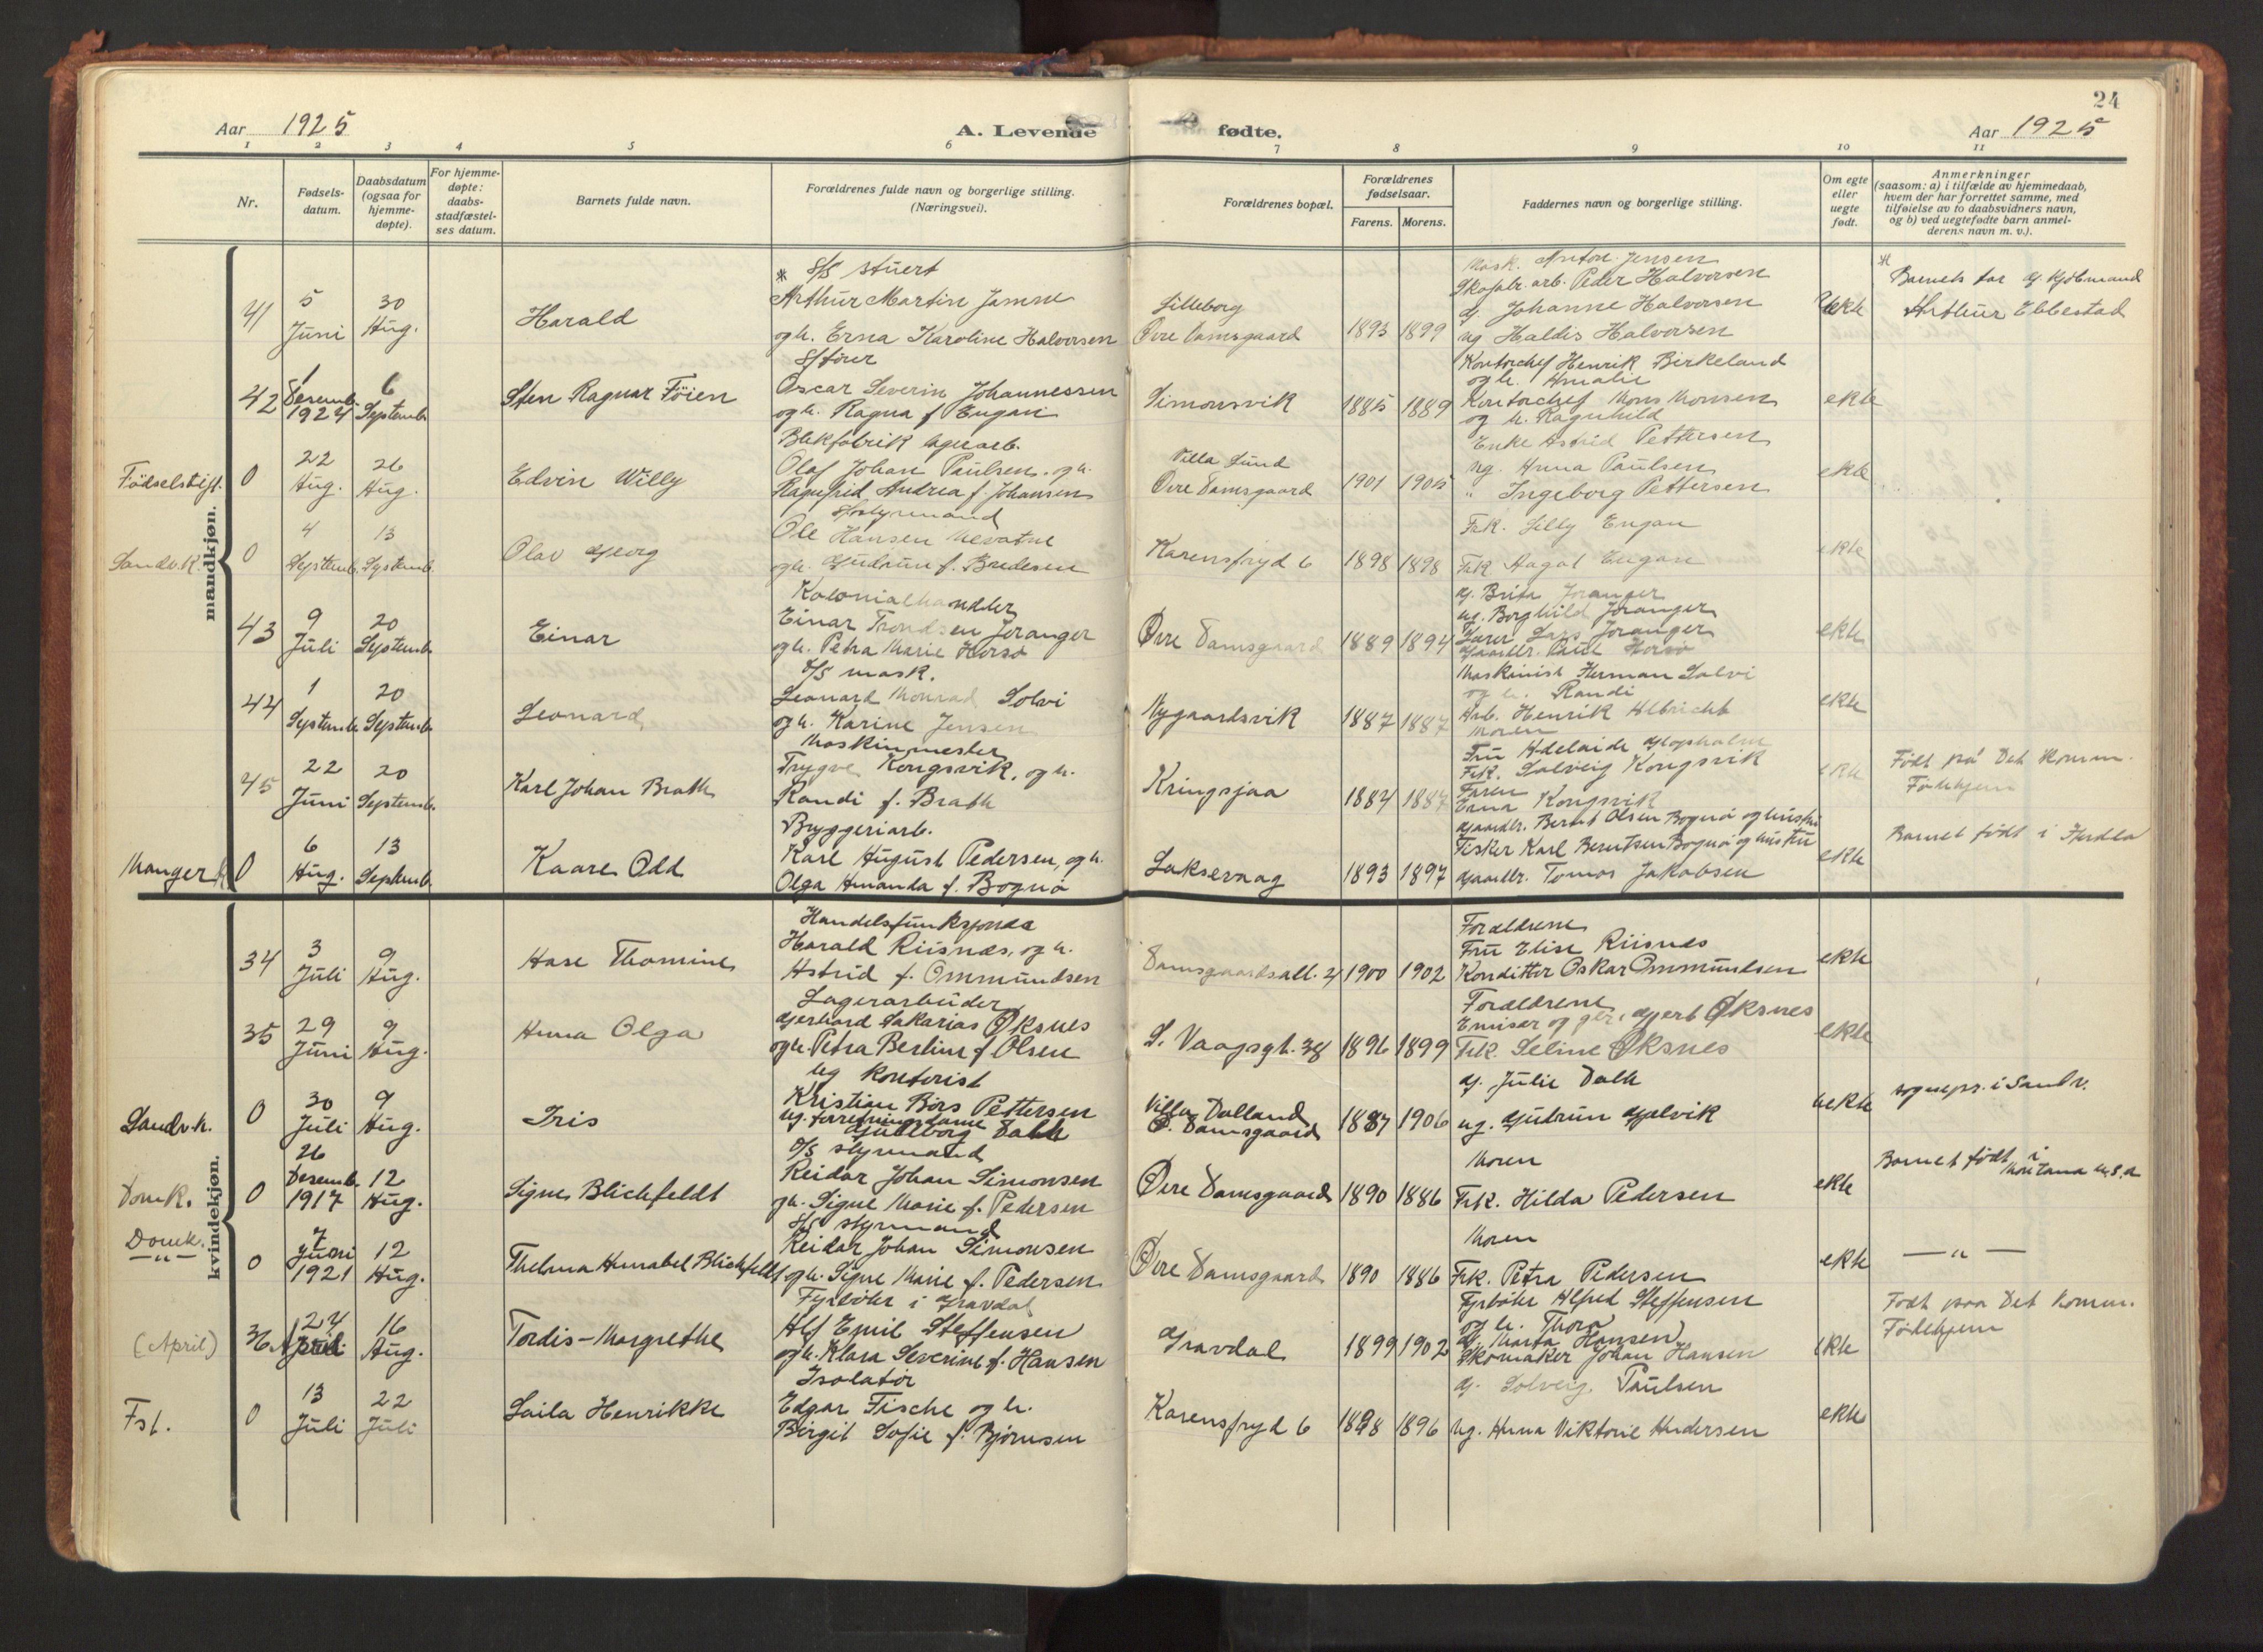 24
Aar 1925
A. Levende
fødte.
Aar 1925
1 2 3 4 5 6 7 8 9 10 11
Nr.
Fødsels-
datum.
Daabsdatum
(ogsaa for
hjemme-
døpte).
For hjemme-
døpte:
daabs-
stadfæstel-
ses datum.
Barnets fulde navn.
Forældrenes fulde navn og borgerlige stilling.
(Næringsvei).
Forældrenes bopæl.
Forældrenes
fødselsaar.
Farens. Morens.
Faddernes navn og borgerlige stilling.
Om egte
eller
uegte
født.
Anmerkninger
(saasom: a) i tilfælde av hjemmedaab,
hvem der har forrettet samme, med
tilføielse av to daabsvidners navn,
og b) ved uegtefødte barn anmel-
derens navn m. v.).
mandkjøn.
41
5
Juni
30
Aug.
Harald
* S/S stuert
Arthur Martin
og h. Erna Karoline Halvorsen
Lilleborg
Øvre Damsgaard
1893 1899
Mask. Anton Jensen
Skofabr. arb. Peder Halvorsen
g. Johanne Halvorsen
ug Haldis Halvorsen
ekte
*
Barnets far g. Kjøbmand
Arthur Ebbestad
42
1
Desemb.
1924
6
Septemb.
Sten Ragnar Föien
S/förer
Oscar Severin Johannessen
og h. Ragna f Engan
Simonsvik
1885 1889
Kontorchef Henrik Birkeland
og h. Amalie
Kontorchef Mons Monsen
og h. Ragnhild
ekte
Födselstift.
0
22
Aug.
26
Aug.
Edvin Willy
Blikfabrik lagerarb.
Olaf Johan Paulsen. og h.
Ragnfrid Andrea f. Johansen
Villa Lund
Øvre Damsgaard
1901 1905
Enke Astrid Pettersen
ug. Anna Paulsen
" Ingeborg Pettersen
ekte
Sandv.K.
0
4
Septemb.
13
Septemb.
Olav Georg
S/styrmand
Ole Hansen Nevatne
og h. Gudrun f. Bredesen
Karensfryd 6
1898 1898
Frk. Lilly Engan
Frk Aagot Engan
ekte
43
9
Juli
20
Septemb.
Einar
Kolonialhandler
Einar Trondsen Joranger
og h. Petra Marie Horsö
Øvre Damsgaard
1889 1894
g. Brita Joranger
ug. Borghild Joranger
Lærer Lars Joranger
Gaardbr. Paul Horsö
ekte
44
1
Septemb.
20
Septemb.
Leonard
D/S mask.
Leonard Monrad Solvi
og h. Karine Jensen
Nygaardsvik
1887 1887
Maskinist Herman Solvi
og h. Randi
Arb. Henrik Albricht
Moren
ekte
45
22
Juni
20
Septemb.
Karl Johan Brath
Maskinmester
Trygve Kongsvik, og h.
Randi f. Brath
Kringsjaa
1884 1887
Fru Adelaide
Frk. Solveig Kongsvik
Faren
Kongsvik
ekte
Født på Det Komm.
Fødehjem
Manger
0
6
Aug.
13
Septemb.
Kaare Odd
Bryggeriarb.
Karl August Pedersen, og h.
Olga Amanda f. Bognö
Laksevaag
1893 1897
Gaardbr. Bernt Olsen Bognö og hustru
Fisker Karl Berntsen Bognö og hustru
Gaardbr. Tomas Jakobsen
ekte
Barnet født i Herdla
kvindekjøn.
34
3
Juli
9
Aug.
Aase Thomine
Handelsfunksjonær
Harald Riisnæs, og h.
Astrid f. Ommundsen
Damsgaardsall. 24
1900 1902
Forældrene
Fru Elise Riisnes
Konditter Oskar Ommundsen
ekte
35
29
Juni
9
Aug.
Anna Olga
Lagerarbeider
Gerhard Sakarias Øksnes
og h. Petra Berline f Olsen
L. Vaagsgt. 38
1896 1899
Forældrene
Gjert Øksnes
Frk. Seline Øksnes
ekte
Sandv.k.
0
30
Juli
9
Aug.
Iris
Ug kontorist
Kristian Börs Pettersen
ug. forretningsdame
Gudborg Dahle
Villa Dalland
Ø. Damsgaard
1887 1906
g. Julie Dahle
ug. Gudrun Gjelvik
uekte
sognepr. i Sandv.
Domk.
0
26
Desemb.
1917
12
Aug.
Signe Blichfeldt
D/S styrmand
Reidar Johan Simonsen
og h. Signe Marie f. Pedersen
Øvre Damsgaard
1890 1886
Moren
Frk. Hilda Pedersen
ekte
Barnet født i
Montana U.S.A
Domk.
— " —
0
7
Juni
1921
12
Aug.
Thelma Annabel Blichfeldt
S/S styrmand
Reidar Johan Simonsen
og h. Signe Marie f. Pedersen
Øvre Damsgaard
1890 1886
Moren
Frk. Petra Pedersen
ekte
— " —
(April)
36
24
April
16
Aug.
Tordis-Margrethe
Fyrböter i Gravdal
Alf Emil Steffensen
og h. Klara Severine f. Hansen
Gravdal
1899 1902
Fyrböter Alfred Steffensen
og h. Thora
g. Marta Hansen
Skomaker Johan Hansen
ekte
Födt paa Det Komm.
Födehjem
Fst.
0
13
Juli
22
Juli
Laila Henrikke
Isolatör
Edgar Fische og h.
Birgit Sofie f. Björnsen
Karensfryd 6
1898 1896
g. Solveig Paulsen
Ug. Anna Viktorie Andersen
ekte